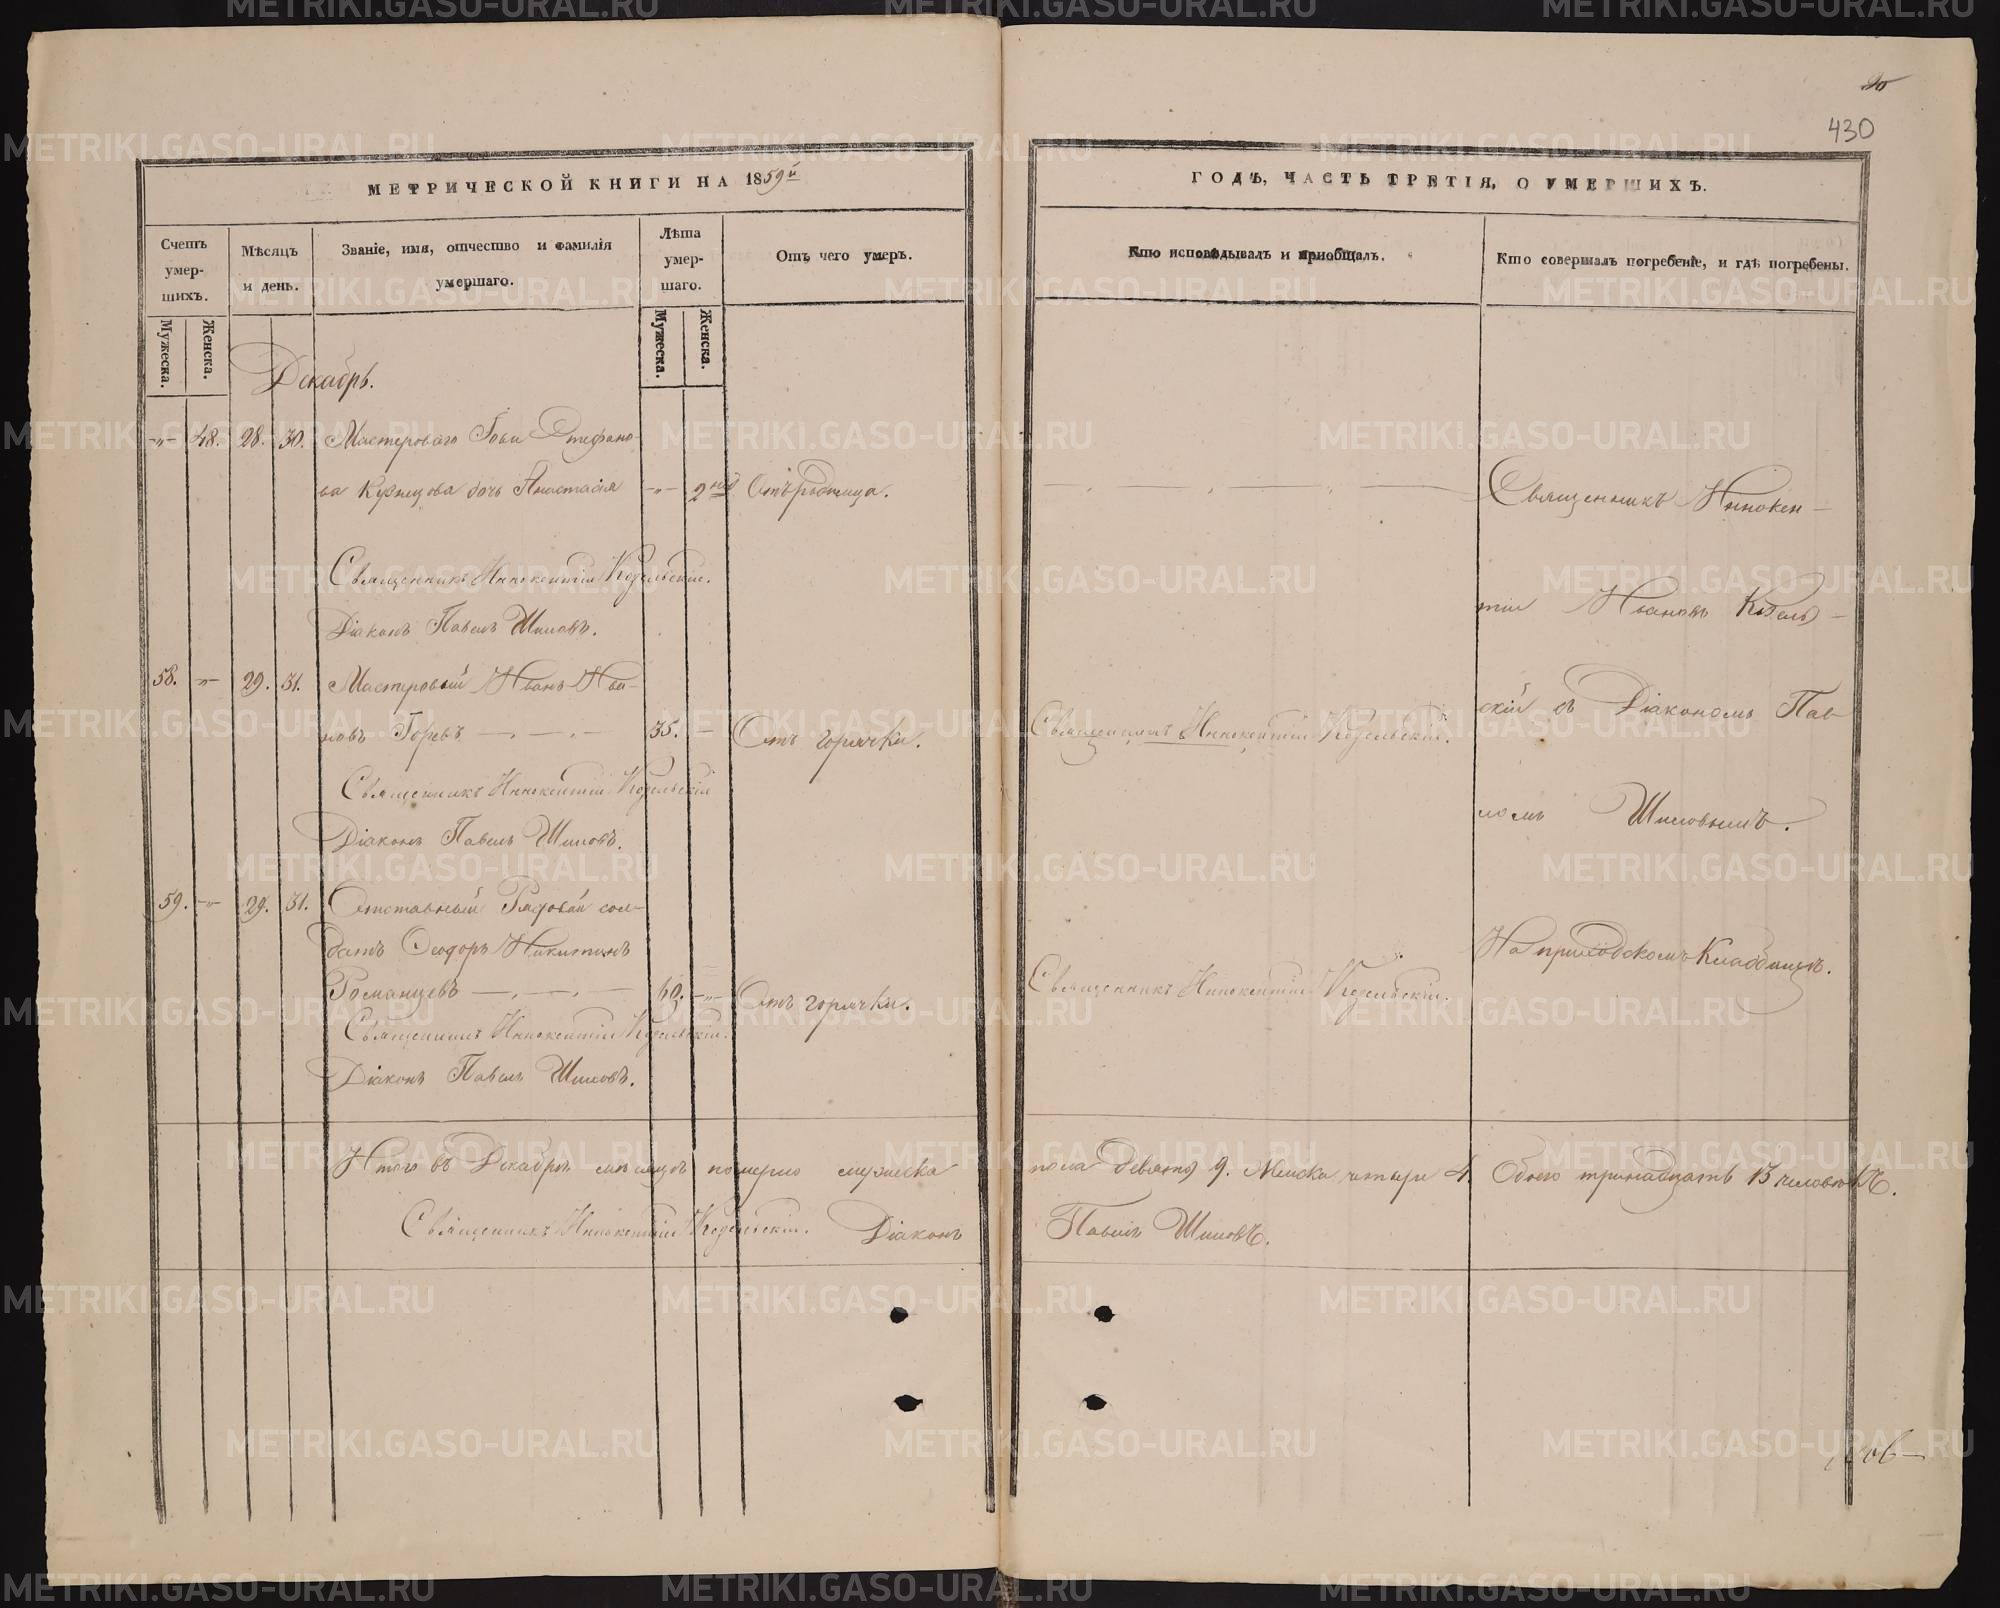 430
МЕТРИЧЕСКОЙ КНИГИ НА 1859й
ГОДЪ, ЧАСТЬ ТРЕТІЯ, О УМЕРШИХЪ.
Счетъ умер-шихъ.
Мѣсяцъ и день.
Званіе, имя, отчество и фамилія умершаго.
Лѣта умер-шаго.
Отъ чего умеръ.
Кто исповѣдывалъ и приобщалъ.
Кто совершалъ погребеніе, и гдѣ погребены.
Мужеска.
Женска.
Мужеска.
Женска.
Декабрь.
-„- 48. 28. 30. Мастероваго Іова Стефано-
ва Кузнецова дочь Анастасія -„- 2 нед Отъ родимца.
Священникъ Иннокентій Козельскій.
Діаконъ Павелъ Шиловъ.
58. -„- 29. 31. Мастеровый Иванъ Ива-
новъ Горевъ 35. — Отъ горячки. Священникъ Иннокентій Козельскій.
Священникъ Иннокентій Козельскій
Діаконъ Павелъ Шиловъ.
59. -„- 29. 31. Отставный Рядовой сол-
датъ Ѳеодоръ Никитинъ
Романцевъ 60. -„- Отъ горячки. Священникъ Иннокентій Козельскій.
Священникъ Иннокентій Козельскій.
Діаконъ Павелъ Шиловъ.
Священникъ Иннокен-
тій Ивановъ Козель-
скій съ Діакономъ Пав-
ломъ Шиловымъ.
На приходскомъ Кладбищѣ.
Итого въ Декабрѣ мѣсяцѣ померло мужеска пола девять 9. Женска четыре 4. Обоего тринадцать 13 человѣкъ.
Священникъ Иннокентій Козельскій. Діаконъ Павелъ Шиловъ.
METRIKI.GASO-URAL.RU